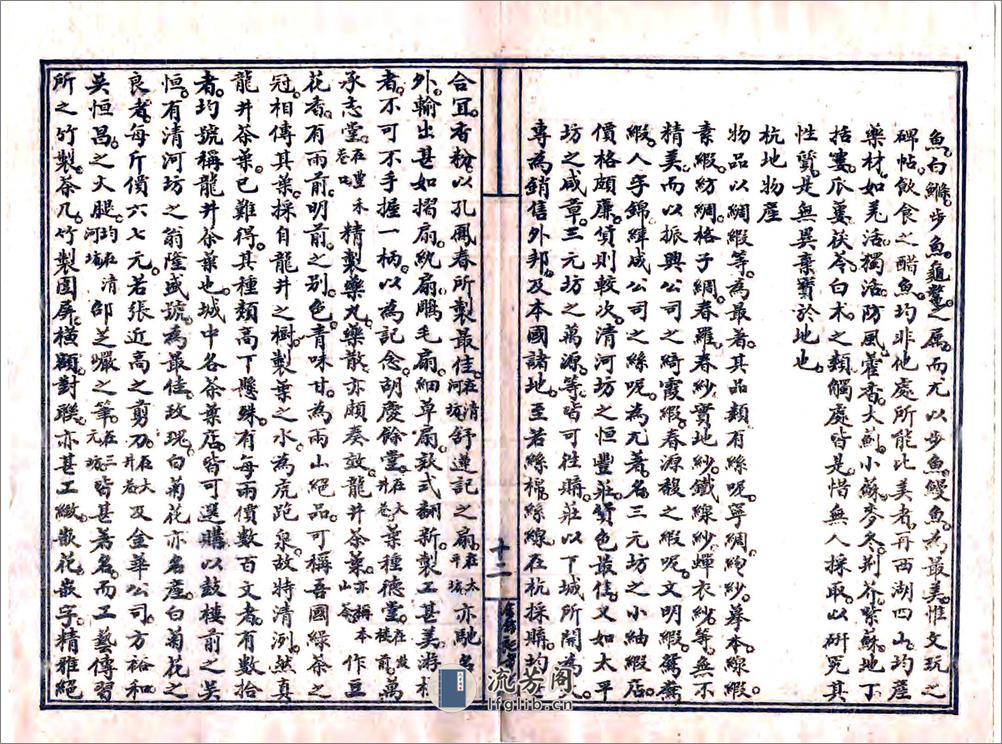 魚白鰷步魚龜鼈之屬而尤以步魚鰻魚為最美惟文玩之
碑帖飲食之醋魚均非他處所能比美者再西湖四山均產
藥材如羌活獨活防風藿香大薊小蘇麥冬荆芥紫蘇地丁
括蔞瓜蔞茯苓白朮之類觸處皆是惜無人採取以研究其
性質是無異棄寶於地也
杭地物產
物品以綢緞等為最著其品類有絲呢寧綢縐紗摹本線緞
素緞紡綢格子綢春羅春紗實地紗鐵線紗蟬衣紗等無不
精美而以振興公司之綺霞緞春源馥之緞呢文明緞鴛鴦
緞人字錦緯成公司之絲呢為尤著名三元坊之小紬緞店
價格頗廉貨則較次清河坊之恒豐莊貨色最佳又如太平
坊之咸章三元坊之萬源等皆可徃購莊以下城所開為
專為銷售外邦及本國諸地至若絲棉絲線在杭採購均
十二
合宜香粉以孔鳳春所製最佳在清河坊舒蓮記之扇在太平坊亦馳名
外輸出甚如摺扇紈扇鵰毛扇細草扇欵式翻新製工甚美游杭
者不可不手握一柄以為記念胡慶餘堂在大井巷葉種德堂在鼓樓前萬
承志堂在豐禾巷口精製藥丸藥散亦頗奏效龍井茶葉亦稱本山茶作豆
花香有雨前明前之別色青味甘為兩山絕品可稱吾國綠茶之
冠相傳其葉採自龍井之樹製葉之水為虎跑泉故特清洌然真
龍井茶葉已難得其種類高下懸殊有每兩價數百文者有數拾
者均號稱龍井茶葉也城中各茶葉店皆可選購以鼓樓前之吳
恒有清河坊之翁隆盛號為最佳玫瑰白菊花亦名產白菊花之
良者每斤價六七元若張近高之剪刀在大井巷及金華公司方裕和
吳恒昌之火腿均在清河坊邵芝巖之筆在三元坊皆甚著名而工藝傳習
所之竹製茶几竹製圍屏橫額對聯亦甚工緻散花嵌字精雅絕
流芳阁
lfglib.cn